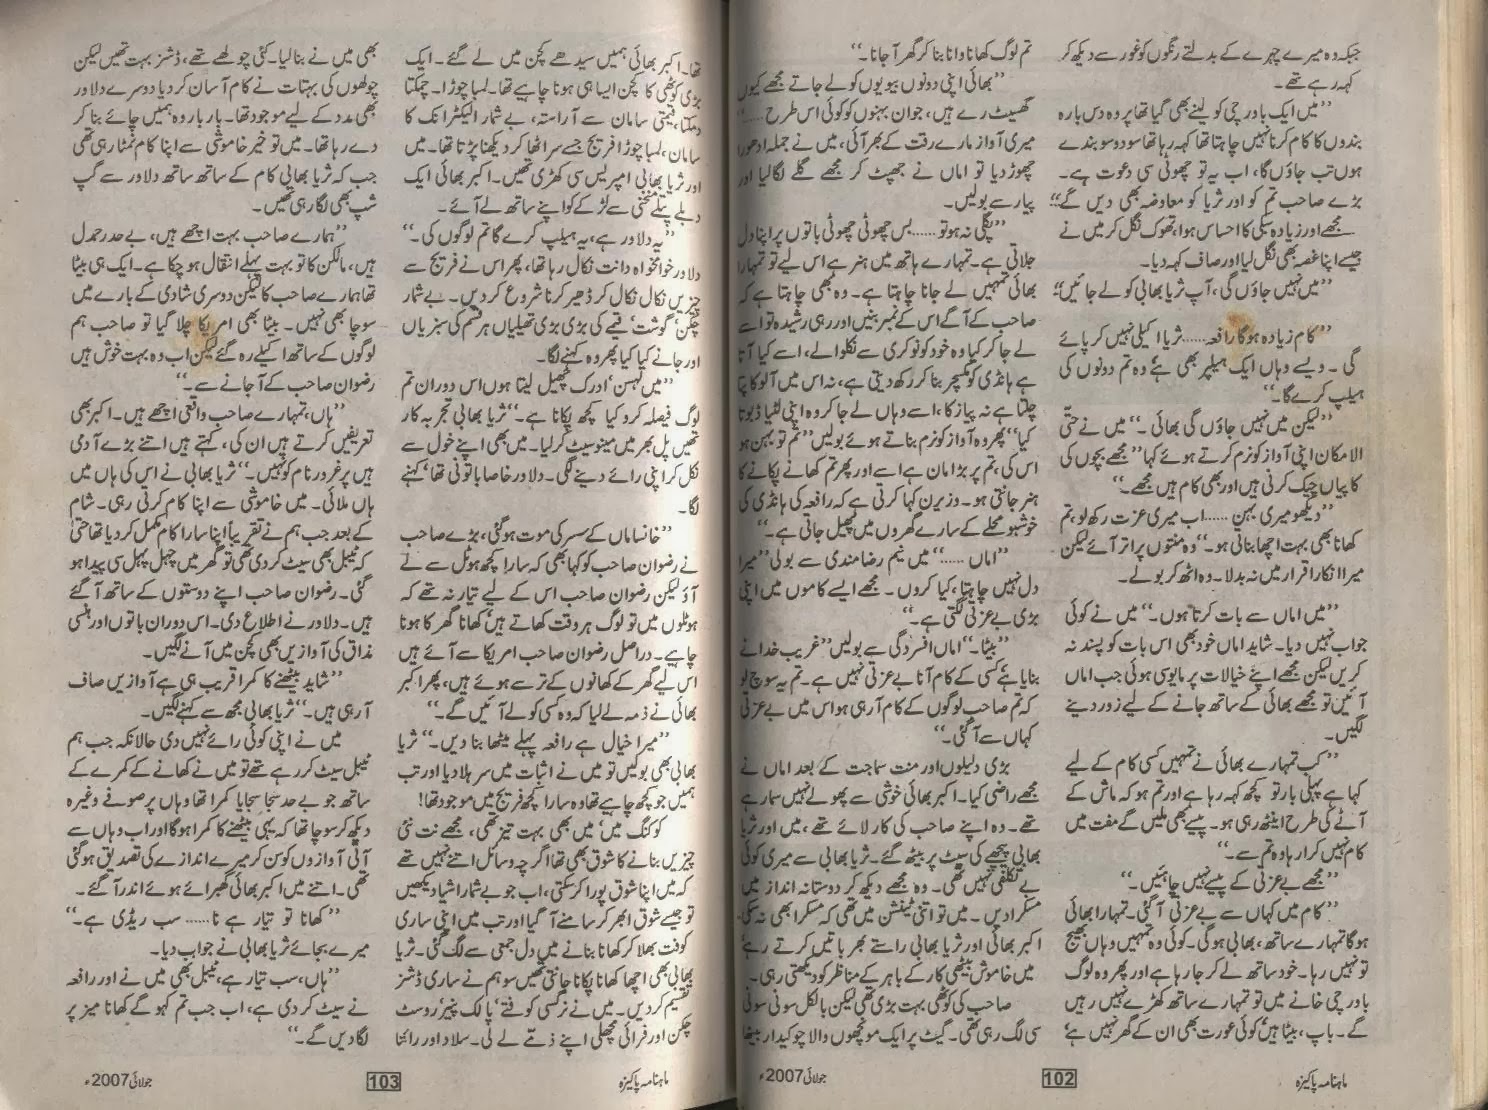 جبکہ وہ میرے چہرے کے بدلتے رنگوں کو غور سے دیکھ کر
کہہ رہے تھے۔
’’میں ایک باورچی کو لینے بھی گیا تھا پر وہ دس بارہ
بندوں کا کام کرنا نہیں چاہتا تھا کہہ رہا تھا سو دو سو بندے
ہوں تب جاؤں گا، اب یہ تو چھوٹی سی دعوت ہے۔
بڑے صاحب تم کو اور ثریا کو معاوضہ بھی دیں گے‘‘
مجھے اور زیادہ سبکی کا احساس ہوا، تھوک نگل کر میں نے
جیسے اپنا غصہ بھی نگل لیا اور صاف کہہ دیا۔
’’میں نہیں جاؤں گی، آپ ثریا بھابی کو لے جائیں‘‘
’’کام زیادہ ہوگا رافعہ...... ثریا اکیلی نہیں کر پائے
گی۔ ویسے وہاں ایک ہیلپر بھی ہے‘ وہ تم دونوں کی
ہیلپ کرے گا۔‘‘
’’لیکن میں نہیں جاؤں گی بھائی۔‘‘ میں نے حتی
الامکان اپنی آواز کو نرم کرتے ہوئے کہا ’’مجھے بچوں کی
کاپیاں چیک کرنی ہیں اور بھی کام ہیں مجھے۔‘‘
’’دیکھو میری بہن...... اب میری عزت رکھ لو، تم
کھانا بھی بہت اچھا بناتی ہو۔‘‘ وہ منتوں پر اتر آئے لیکن
میرا انکار اقرار میں نہ بدلا۔ وہ اٹھ کر بولے۔
’’میں اماں سے بات کرتا ہوں۔‘‘ میں نے کوئی
جواب نہیں دیا۔ شاید اماں خود بھی اس بات کو پسند نہ
کریں لیکن مجھے اپنے خیالات پر مایوسی ہوئی جب اماں
آئیں تو مجھے بھائی کے ساتھ جانے کے لیے زور دینے
لگیں۔
’’کب تمہارے بھائی نے تمہیں کسی کام کے لیے
کہا ہے پہلی بار تو کچھ کہہ رہا ہے اور تم ہو کہ ماش کے
آٹے کی طرح اینٹھ رہی ہو۔ پیسے بھی ملیں گے مفت میں
کام نہیں کرا رہا وہ تم سے۔‘‘
’’مجھے بے عزتی کے پیسے نہیں چاہئیں۔‘‘
’’کام میں کہاں سے بے عزتی آگئی۔ تمہارا بھائی
ہوگا تمہارے ساتھ، بھابی ہوگی۔ کوئی وہ تمہیں وہاں بھیج
تو نہیں رہا۔ خود ساتھ لے کر جا رہا ہے اور پھر وہ لوگ
باورچی خانے میں تو تمہارے ساتھ کھڑے نہیں رہیں
گے۔ باپ، بیٹا ہیں‘ کوئی عورت بھی ان کے گھر نہیں ہے‘
تم لوگ کھانا وانا بنا کر گھر آ جانا۔‘‘
’’بھائی اپنی دونوں بیویوں کو لے جاتے مجھے کیوں
گھسیٹ رہے ہیں، جوان بہنوں کو کوئی اس طرح......‘‘
میری آواز مارے رقت کے بھر آئی، میں نے جملہ ادھورا
چھوڑ دیا تو اماں نے جھپٹ کر مجھے گلے لگا لیا اور
پیار سے بولیں۔
’’پگلی نہ ہو تو...... بس چھوٹی چھوٹی باتوں پر اپنا دل
جلاتی ہے۔ تمہارے ہاتھ میں ہنر ہے اس لیے تو تمہارا
بھائی تمہیں لے جانا چاہتا ہے۔ وہ بھی چاہتا ہے کہ
صاحب کے آگے اس کے نمبر بنیں اور رہی رشیدہ تو اسے
لے جا کر کیا وہ خود کو نوکری سے نکلوا لے، اسے کیا آتا
ہے ہانڈی کو مکسچر بنا کر رکھ دیتی ہے، نہ اس میں آلو کا پتا
چلتا ہے نہ پیاز کا، اسے وہاں لے جا کر وہ اپنی لٹیا ڈبوتا
کیا‘‘ پھر وہ آواز کو نرم بناتے ہوئے بولیں ’’تم تو بہن ہو
اس کی، تم پر بڑا مان ہے اسے اور پھر تم کھانے پکانے کا
ہنر جانتی ہو۔ وزیرن کہا کرتی ہے کہ رافعہ کی ہانڈی کی
خوشبو محلے کے سارے گھروں میں پھیل جاتی ہے۔‘‘
’’اماں......‘‘ میں نیم رضامندی سے بولی ’’میرا
دل نہیں چاہتا، کیا کروں۔ مجھے ایسے کاموں میں اپنی
بڑی بے عزتی لگتی ہے۔‘‘
’’بیٹا۔‘‘ اماں افسردگی سے بولیں ’’غریب خدا نے
بنایا ہے‘ کسی کے کام آنا بے عزتی نہیں ہے۔ تم یہ سوچ لو
کہ تم صاحب لوگوں کے کام آ رہی ہو اس میں بے عزتی
کہاں سے آگئی۔‘‘
بڑی دلیلوں اور منت سماجت کے بعد اماں نے
مجھے راضی کیا۔ اکبر بھائی خوشی سے پھولے نہیں سما رہے
تھے۔ وہ اپنے صاحب کی کار لائے تھے، میں اور ثریا
بھابی پیچھے کی سیٹ پر بیٹھ گئے۔ ثریا بھابی سے میری کوئی
بے تکلفی نہیں تھی۔ وہ مجھے دیکھ کر دوستانہ انداز میں
مسکرا دیں۔ میں تو اتنی ٹینشن میں تھی کہ مسکرا بھی نہ سکی۔
اکبر بھائی اور ثریا بھابی راستے بھر باتیں کرتے رہے‘
میں خاموش بیٹھی کار کے باہر کے مناظر کو دیکھتی رہی۔
صاحب کی کوٹھی بہت بڑی تھی لیکن بالکل سونی سونی
سی لگ رہی تھی۔ گیٹ پر ایک مونچھوں والا چوکیدار بیٹھا
ماہنامہ پاکیزہ
102
جولائی 2007ء
تھا۔ اکبر بھائی ہمیں سیدھے کچن میں لے گئے۔ ایک
بڑی کوٹھی کا کچن ایسا ہی ہونا چاہیے تھا۔ لمبا چوڑا۔ چمکتا
دمکتا، قیمتی سامان سے آراستہ، بے شمار الیکٹرانک کا
سامان، لمبا چوڑا فریج جسے سر اٹھا کر دیکھنا پڑتا تھا۔ میں
اور ثریا بھابی امپریس سی کھڑی تھیں۔ اکبر بھائی ایک
دبلے پتلے منحنی سے لڑکے کو اپنے ساتھ لے آئے۔
’’یہ دلاور ہے، یہ ہیلپ کرے گا تم لوگوں کی۔‘‘
دلاور خوامخواہ دانت نکال رہا تھا، پھر اس نے فریج سے
چیزیں نکال نکال کر ڈھیر کرنا شروع کر دیں۔ بے شمار
چکن‘ گوشت‘ قیمے کی بڑی بڑی تھیلیاں ہر قسم کی سبزیاں
اور جانے کیا کیا پھر وہ کہنے لگا۔
’’میں لہسن‘ ادرک چھیل لیتا ہوں اس دوران تم
لوگ فیصلہ کر و کیا کچھ پکانا ہے۔‘‘ ثریا بھابی تجربہ کار
تھیں پل بھر میں مینو سیٹ کر لیا۔ میں بھی اپنے خول سے
نکل کر اپنی رائے دینے لگی۔ دلاور خاصا باتونی تھا‘ کہنے
لگا۔
’’خانساماں کے سسر کی موت ہوگئی، بڑے صاحب
نے رضوان صاحب کو کہا بھی کہ سارا کچھ ہوٹل سے لے
آؤ لیکن رضوان صاحب اس کے لیے تیار نہ تھے کہ
ہوٹلوں میں تو لوگ ہر وقت کھاتے ہیں‘ کھانا گھر کا ہونا
چاہیے۔ دراصل رضوان صاحب امریکا سے آئے ہیں
اس لیے گھر کے کھانوں کے ترسے ہوئے ہیں، پھر اکبر
بھائی نے ذمہ لے لیا کہ وہ کسی کو لے آئیں گے۔‘‘
’’میرا خیال ہے رافعہ پہلے میٹھا بنا دیں۔‘‘ ثریا
بھابی بھی بولیں تو میں نے اثبات میں سر ہلا دیا اور تب
ہمیں جو کچھ چاہیے تھا وہ سارا کچھ فریج میں موجود تھا!
کوکنگ میں‘ میں بھی بہت تیز تھی، مجھے نت نئی
چیزیں بنانے کا شوق بھی تھا اگرچہ وسائل اتنے نہیں تھے
کہ میں اپنا شوق پورا کر سکتی، اب جو بے شمار اشیا دیکھیں
تو جیسے شوق ابھر کر سامنے آ گیا اور تب میں اپنی ساری
کوفت بھلا کر کھانا بنانے میں دل جمعی سے لگ گئی۔ ثریا
بھابی بھی اچھا کھانا پکانا جانتی تھیں سو ہم نے ساری ڈشز
تقسیم کر دیں۔ میں نے نرگسی کوفتے‘ پالک پنیر‘ روسٹ
چکن اور فرائی مچھلی اپنے ذمّے لے لی۔ سلاد اور رائتا
بھی میں نے بنا لیا۔ کئی چولھے تھے، ڈشز بہت تھیں لیکن
چولھوں کی بہتات نے کام آسان کر دیا دوسرے دلاور
بھی مدد کے لیے موجود تھا۔ بار بار وہ ہمیں چائے بنا کر
دے رہا تھا۔ میں تو خیر خاموشی سے اپنا کام نمٹا رہی تھی
جب کہ ثریا بھابی کام کے ساتھ ساتھ دلاور سے گپ
شپ بھی لگا رہی تھیں۔
’’ہمارے صاحب بہت اچھے ہیں، بے حد رحمدل
ہیں، مالکن کا تو بہت پہلے انتقال ہو چکا ہے۔ ایک ہی بیٹا
تھا ہمارے صاحب کا لیکن دوسری شادی کے بارے میں
سوچا بھی نہیں۔ بیٹا بھی امریکا چلا گیا تو صاحب ہم
لوگوں کے ساتھ اکیلے رہ گئے لیکن اب وہ بہت خوش ہیں
رضوان صاحب کے آ جانے سے۔‘‘
’’ہاں، تمہارے صاحب واقعی اچھے ہیں۔ اکبر بھی
تعریفیں کرتے ہیں ان کی، کہتے ہیں اتنے بڑے آدمی
ہیں پر غرور نام کو نہیں۔‘‘ ثریا بھابی نے اس کی ہاں میں
ہاں ملائی۔ میں خاموشی سے اپنا کام کرتی رہی۔ شام
کے بعد جب ہم نے تقریباً اپنا سارا کام مکمل کر دیا تھا حتیٰ
کہ ٹیبل بھی سیٹ کر دی تھی تو گھر میں چہل پہل سی پیدا ہو
گئی۔ رضوان صاحب اپنے دوستوں کے ساتھ آ گئے
ہیں۔ دلاور نے اطلاع دی۔ اس دوران باتوں اور ہنسی
مذاق کی آوازیں بھی کچن میں آنے لگیں۔
’’شاید بیٹھنے کا کمرا قریب ہی ہے آوازیں صاف
آ رہی ہیں۔‘‘ ثریا بھابی مجھ سے کہنے لگیں۔
میں نے اپنی کوئی رائے نہیں دی حالانکہ جب ہم
ٹیبل سیٹ کر رہے تھے تو میں نے کھانے کے کمرے کے
ساتھ جو بے حد سجا سجایا کمرا تھا وہاں پر صوفے وغیرہ
دیکھ کر سوچا تھا کہ یہی بیٹھنے کا کمرا ہوگا اور اب وہاں سے
آتی آوازوں کو سن کر میرے اندازے کی تصدیق ہو گئی
تھی۔ اتنے میں اکبر بھائی گھبرائے ہوئے اندر آ گئے۔
’’کھانا تو تیار ہے نا...... سب ریڈی ہے۔‘‘
میرے بجائے ثریا بھابی نے جواب دیا۔
’’ہاں، سب تیار ہے، ٹیبل بھی میں نے اور رافعہ
نے سیٹ کر دی ہے، اب جب تم کہو گے کھانا میز پر
لگا دیں گے۔‘‘
ماہنامہ پاکیزہ
103
جولائی 2007ء